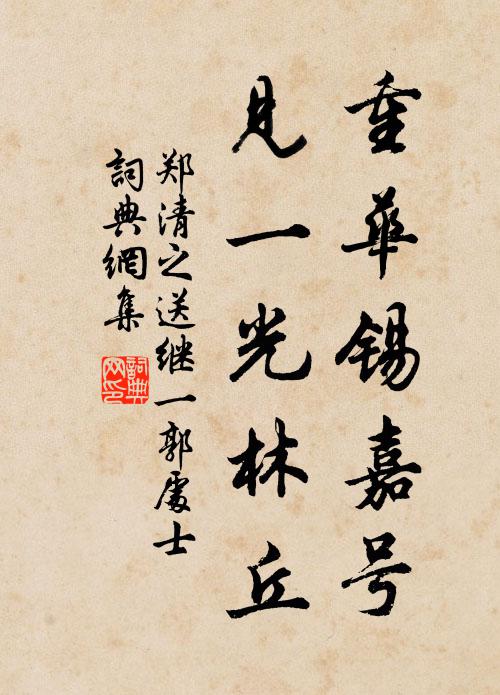 重华锡嘉号
见一光林丘
郑清之送继一郭處士
詞典網集
詞典网印